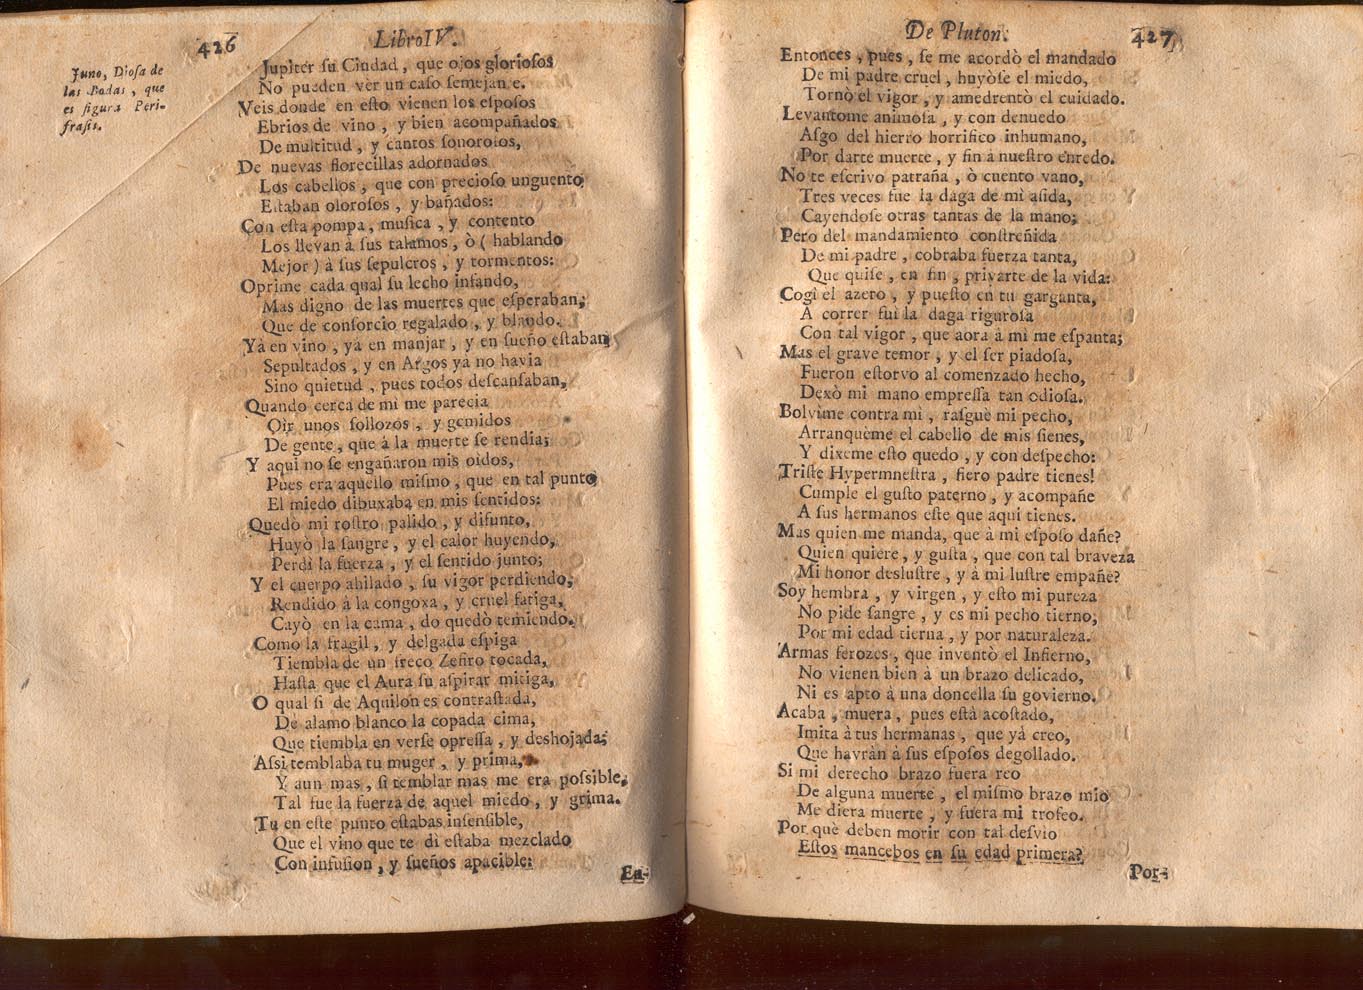 426
Libro IV.
Juno, Diosa de
las Bodas, que
es figura Peri-
frasis.
Jupiter su Ciudad, que ojos gloriosos
No pueden vèr un caso semejante.
Veis donde en esto vienen los esposos
Ebrios de vino, y bien acompañados
De multitud, y cantos sonorosos,
De nuevas florecillas adornados
Los cabellos, que con precioso unguento
Estaban olorosos, y bañados:
Con esta pompa, musica, y contento
Los llevan à sus talamos, ò (hablando
Mejor) à sus sepulcros, y tormentos:
Oprime cada qual su lecho infando,
Mas digno de las muertes que esperaban,
Que de consorcio regalado, y blando.
Yà en vino, yà en manjar, y en sueño estaban
Sepultados, y en Argos ya no havia
Sino quietud, pues todos descansaban,
Quando cerca de mi me parecia
Oir unos sollozos, y gemidos
De gente, que à la muerte se rendia;
Y aqui no se engañaron mis oidos,
Pues era aquello mismo, que en tal punto
El miedo dibuxaba en mis sentidos:
Quedò mi rostro palido, y difunto,
Huyò la sangre, y el calor huyendo,
Perdi la fuerza, y el sentido junto;
Y el cuerpo ahilado, su vigor perdiendo,
Rendido à la congoxa, y cruel fatiga,
Cayò en la cama, do quedò temiendo.
Como la fragil, y delgada espiga
Tiembla de un fresco Zefiro tocada,
Hasta que el Aura su aspirar mitiga,
O qual si de Aquilòn es contrastada,
De alamo blanco la copada cima,
Que tiembla en verse opressa, y deshojada;
Assi temblaba tu muger, y prima,
Y aun mas, si temblar mas me era possible,
Tal fue la fuerza de aquel miedo, y grima.
Tu en este punto estabas insensible,
Que el vino que te dì estaba mezclado
Con infusion, y sueños apacible:
En-
De Pluton.
427
Entonces, pues, se me acordò el mandado
De mi padre cruel, huyòse el miedo,
Tornò el vigor, y amedrentò el cuidado.
Levantome animosa, y con denuedo
Asgo del hierro horrifico inhumano,
Por darte muerte, y fin à nuestro enredo.
No te escrivo patraña, ò cuento vano,
Tres veces fue la daga de mi asida,
Cayendose otras tantas de la mano;
Pero del mandamiento constreñida
De mi padre, cobraba fuerza tanta,
Que quise, en fin, privarte de la vida:
Cogì el azero, y puesto en tu garganta,
A correr fui la daga rigurosa
Con tal vigor, que aora à mi me espanta;
Mas el grave temor, y el ser piadosa,
Fueron estorvo al comenzado hecho,
Dexò mi mano empressa tan odiosa.
Bolvìme contra mi, rasguè mi pecho,
Arranquème el cabello de mis sienes,
Y dixeme esto quedo, y con despecho:
Triste Hypermnestra, fiero padre tienes!
Cumple el gusto paterno, y acompañe
A sus hermanos este que aqui tienes.
Mas quien me manda, que à mi esposo dañe?
Quien quiere, y gusta, que con tal braveza
Mi honor deslustre, y à mi lustre empañe?
Soy hembra, y virgen, y esto mi pureza
No pide sangre, y es mi pecho tierno,
Por mi edad tierna, y por naturaleza.
Armas ferozes, que inventò el Infierno,
No vienen bien à un brazo delicado,
Ni es apto à una doncella su govierno.
Acaba, muera, pues està acostado,
Imita à tus hermanas, que yà creo,
Que havràn à sus esposos degollado.
Si mi derecho brazo fuera reo
De alguna muerte, el mismo brazo mio
Me diera muerte, y fuera mi trofeo.
Por què deben morir con tal desvio
Estos mancebos en su edad primera?
Por-